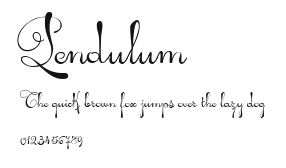 Pendulum
The quick brown fox jumps over the lazy dog
0123456789